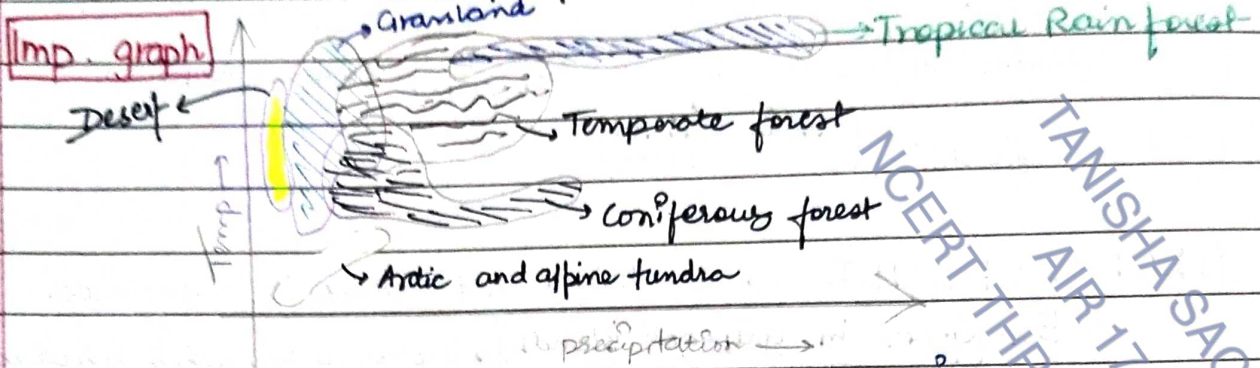 Imp. graph
Grassland
Tropical Rain forest
Desert
Temperate forest
Temp →
Coniferous forest
Arctic and alpine tundra
precipitation →
TANISHA SAC
AIR 17
NCERT THR